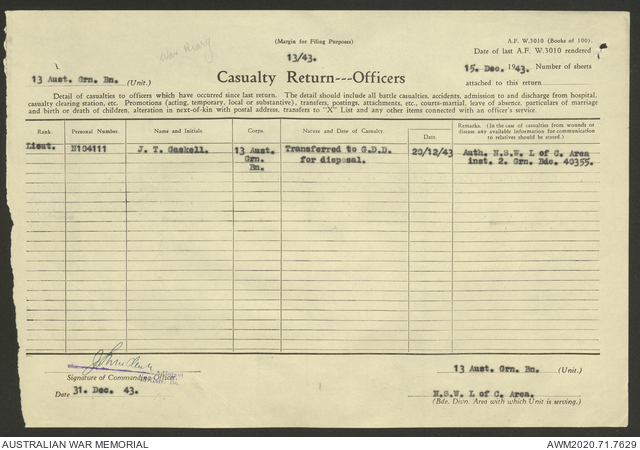 War Diary
(Margin for Filing Purposes)
A.F. W.3010 (Books of 100).
13/43.
Date of last A.F. W.3010 rendered
13 Aust. Grn. Bn. (Unit.)
Casualty Return---Officers
15. Dec. 1943. Number of sheets
attached to this return
Detail of casualties to officers which have occurred since last return. The detail should include all battle casualties, accidents, admission to and discharge from hospital,
casualty clearing station, etc. Promotions (acting, temporary, local or substantive), transfers, postings, attachments, etc., courts-martial, leave of absence, particulars of marriage
and birth or death of children, alteration in next-of-kin with postal address, transfers to "X" List and any other items connected with an officer's service.
Rank. Personal Number. Name and Initials. Corps. Nature and Date of Casualty. Date Remarks. (In the case of casualties from wounds or
disease any available information for communication
to relatives should be stated.)
Lieut. N104111 J. T. Gaskell. 13 Aust. Transferred to G.D.D. 20/12/43 Auth. N.S.W. L of C. Area
Grn. for disposal. inst. 2. Grn. Bde. 40355.
Bn.
Signature of Commanding Officer.
Date 31. Dec. 43.
13 Aust. Grn. Bn. (Unit.)
N.S.W. L of C. Area.
(Bde. Divn. Area with which Unit is serving.)
AUSTRALIAN WAR MEMORIAL
AWM2020.71.7629